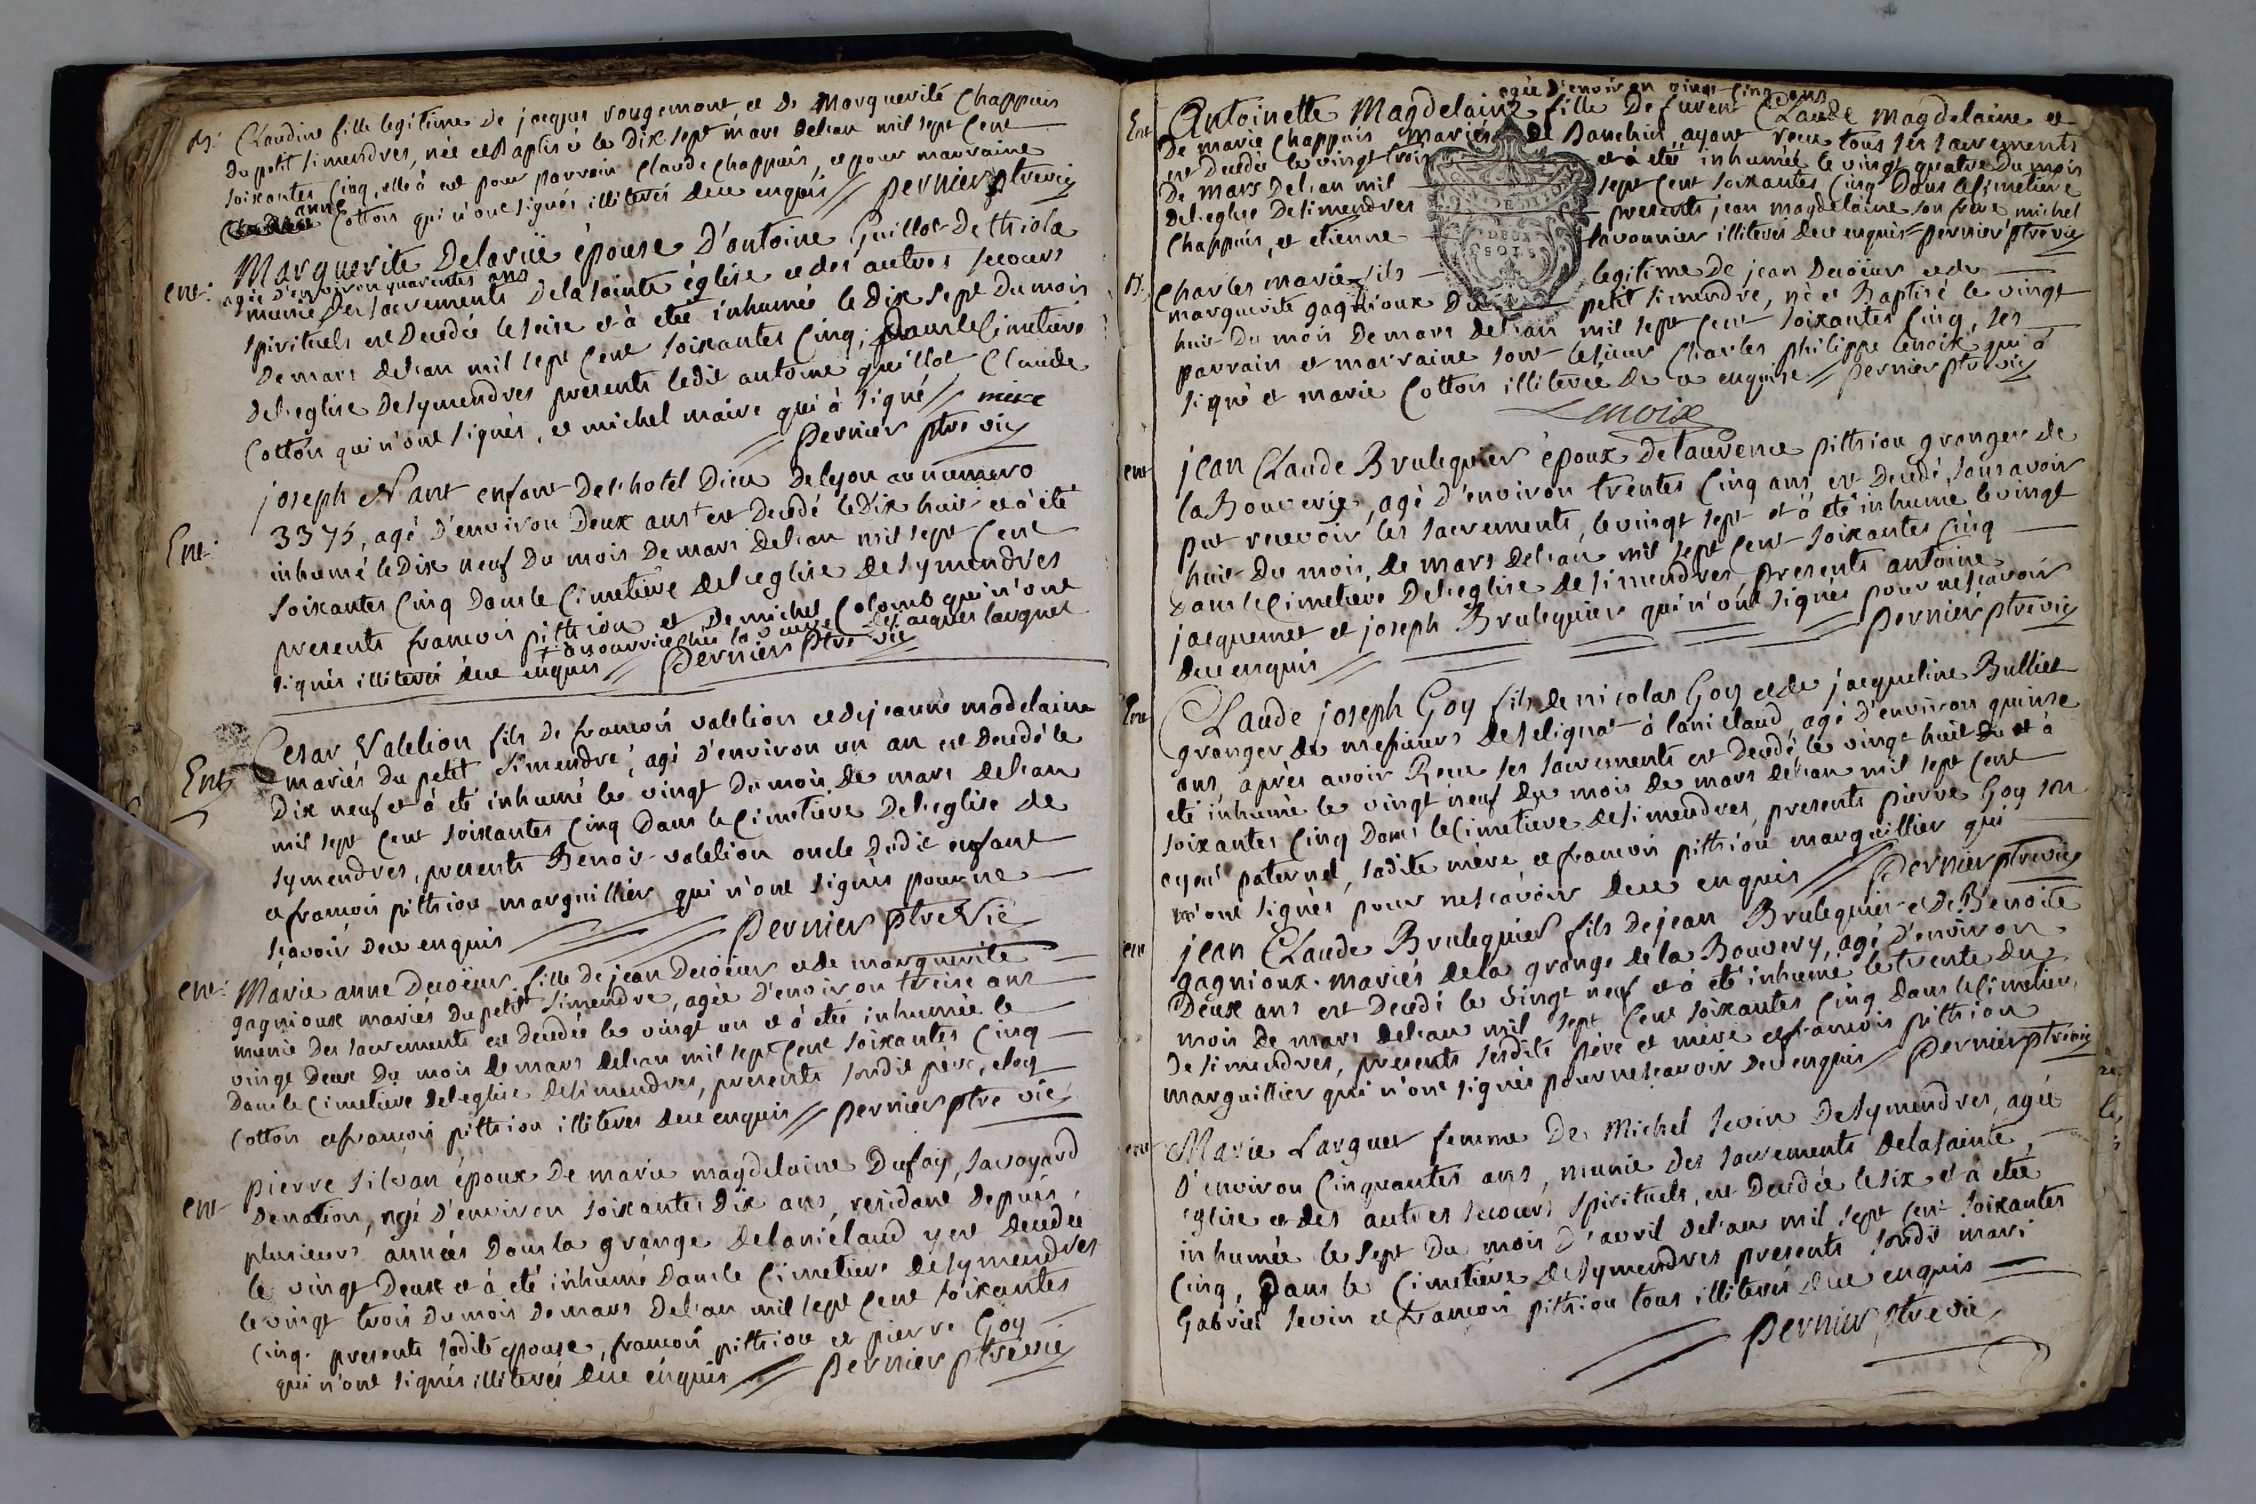 B: Claudine fille legitime de jacque rougemont et de Marguerite Chappuis
du petit simendres, née et Baptisé le dix sept mars de l'an mil sept cent
soixantes Cinq, elle à eut pour parrain Claude Chappuis, et pour marraine
anne Cotton qui n'ont signés illiterés de ce enquis // pernier ptre vic
ent: Marguerite Delarüe épouse D'antoine Guillot de thiola
agée d'environ quarentes ans
munie Des sacrements de la sainte église et des autres secours
spirituels est Decedée le seise et à eté inhumée le Dix sept du mois
De mars de l'an mil sept cent soixantes Cinq, Dans le Cimetiere
de l'eglise de symendres presents ledit antoine guillot Claude
Cotton qui n'ont signés, et michel maire qui à signé // mire
pernier ptre vic
Ent: joseph Nant enfant de l'hotel Dieu de lyon au numero
3375, agé d'environ Deux ans + est Decedé le Dix huit et à été
inhumé le Dix neuf Du mois De mars de l'an mil sept cent
soixantes Cinq Dans le Cimetiére de l'eglise de symendres
presents francois pithiou et De michel Colomb qui n'ont
+ en nourrice chés la veuve de jacques larguet
signés illiterés de ce enquis // pernier ptre vic
Ent Cesar Valelion fils de francois valelion et de jeanne madelaine
mariés du petit simendre, agé d'environ un an est decedé le
Dix neuf et à eté inhumé le vingt du mois de mars de l'an
mil sept cent soixantes Cinq Dans le Cimetiere de l'eglise de
symendres, presents Benoit valelion oncle dudit enfant
et francois pithiou marguillier qui n'ont signés pour ne
scavoir de ce enquis // pernier ptre vic
ent: Marie anne Decœur fille de jean Decœur et de marguerite
gagnioux mariés du petit simendre, agée d'environ treise ans
munie des sacrements est decedée le vingt un et à eté inhumée le
vingt deux du mois de mars de l'an mil sept cent soixantes Cinq
Dans le Cimetiere de l'eglise de simendres, presents sondit pére,
Cotton et francois pithiou illiterés de ce enquis // pernier ptre vic
ent pierre silvan époux De marie magdelaine Dufay, savoyard
De nation, agé d'environ soixantes Dix ans, residant depuis
plusieurs années Dans la grange de laniélaud y est decedée
le vingt Deux et à eté inhumé Dans le Cimetiere de symendres
le vingt trois du mois de mars de l'an mil sept cent soixantes
Cinq. presents sadite epouse, francois pithiou et pierre Goy
qui n'ont signés illiterés de ce enquis // pernier ptre vic
agée d'environ vingt cinq ans
Ent Antoinette Magdelaine fille De furent Claude Magdelaine et
De marie Chappuis mariée ayant reçu tous ses sacrements
est decedée le vingt trois et à eté inhumée le vingt quatre du mois
De mars De l'an mil sept cent soixantes Cinq Dans le Cimetiere
de l'eglise De simendres presents jean magdelaine son frere michel
Chappuis, et etienne savounier illiterés de ce enquis pernier ptre vic
DEUX
SOLS
B. Charles marie fils legitime de jean Decœur et de
marguerite gagnioux du petit simendre, né et Baptisé le vingt
huit du mois de mars de l'an mil sept cent soixantes Cinq, ses
parrain et marraine sont le sieur Charles philippe Lenoix qui à
signé et marie Cotton illiterée de ce enquise // pernier ptre vic
Lenoix
ent jean Claude Brulequier époux de laurence pithiou granger de
la Bouverie, agé D'environ trentes Cinq ans est Decedé, sans avoir
put recevoir les sacrements, le vingt sept et à eté inhumé le vingt
huit du mois, de mars de l'an mil sept cent soixantes Cinq
Dans le Cimetiere de l'eglise de simendres, presents antoine
jacquemet et joseph Brulequier qui n'ont signés pour ne scavoir
de ce enquis // pernier ptre vic
Ent Claude joseph Goy fils de nicolas Goy et de jacqueline Bulliet
granger de messieurs de selignat à laniélaud, agé d'environ quinse
ans, aprés avoir Recu ses sacrements est decedé, le vingt huit et à
eté inhumé le vingt neuf du mois de mars de l'an mil sept cent
soixantes Cinq Dans le Cimetiere de simendres, presents pierre Goy son
ayeul paternel, sadite mère et francois pithiou marguillier qui
n'ont signés pour ne scavoir de ce enquis // pernier ptre vic
ent jean Claude Brulequier fils de jean Brulequier et de Benoite
gagnioux mariés de la grange de la Bouvery, agé d'environ
Deux ans est decedé le vingt neuf et à été inhumé le trente du
mois de mars de l'an mil sept cent soixantes Cinq dans le Cimetiere
De simendres, presents sesdits père et mère et francois pithiou
marguillier qui n'ont signés pour ne scavoir de ce enquis // pernier ptre vic
ent Marie Larguet femme De Michel sevin de symendres, agée
d'environ Cinquantes ans, munie des sacrements de la sainte
eglise et des autres secours spirituels, est decedée le six et à eté
inhumée le sept du mois d'avril de l'an mil sept cent soixantes
Cinq, Dans le Cimetiére de symendres presents sondit mari
Gabriel sevin et francois pithiou tous illiterés de ce enquis
pernier ptre vic